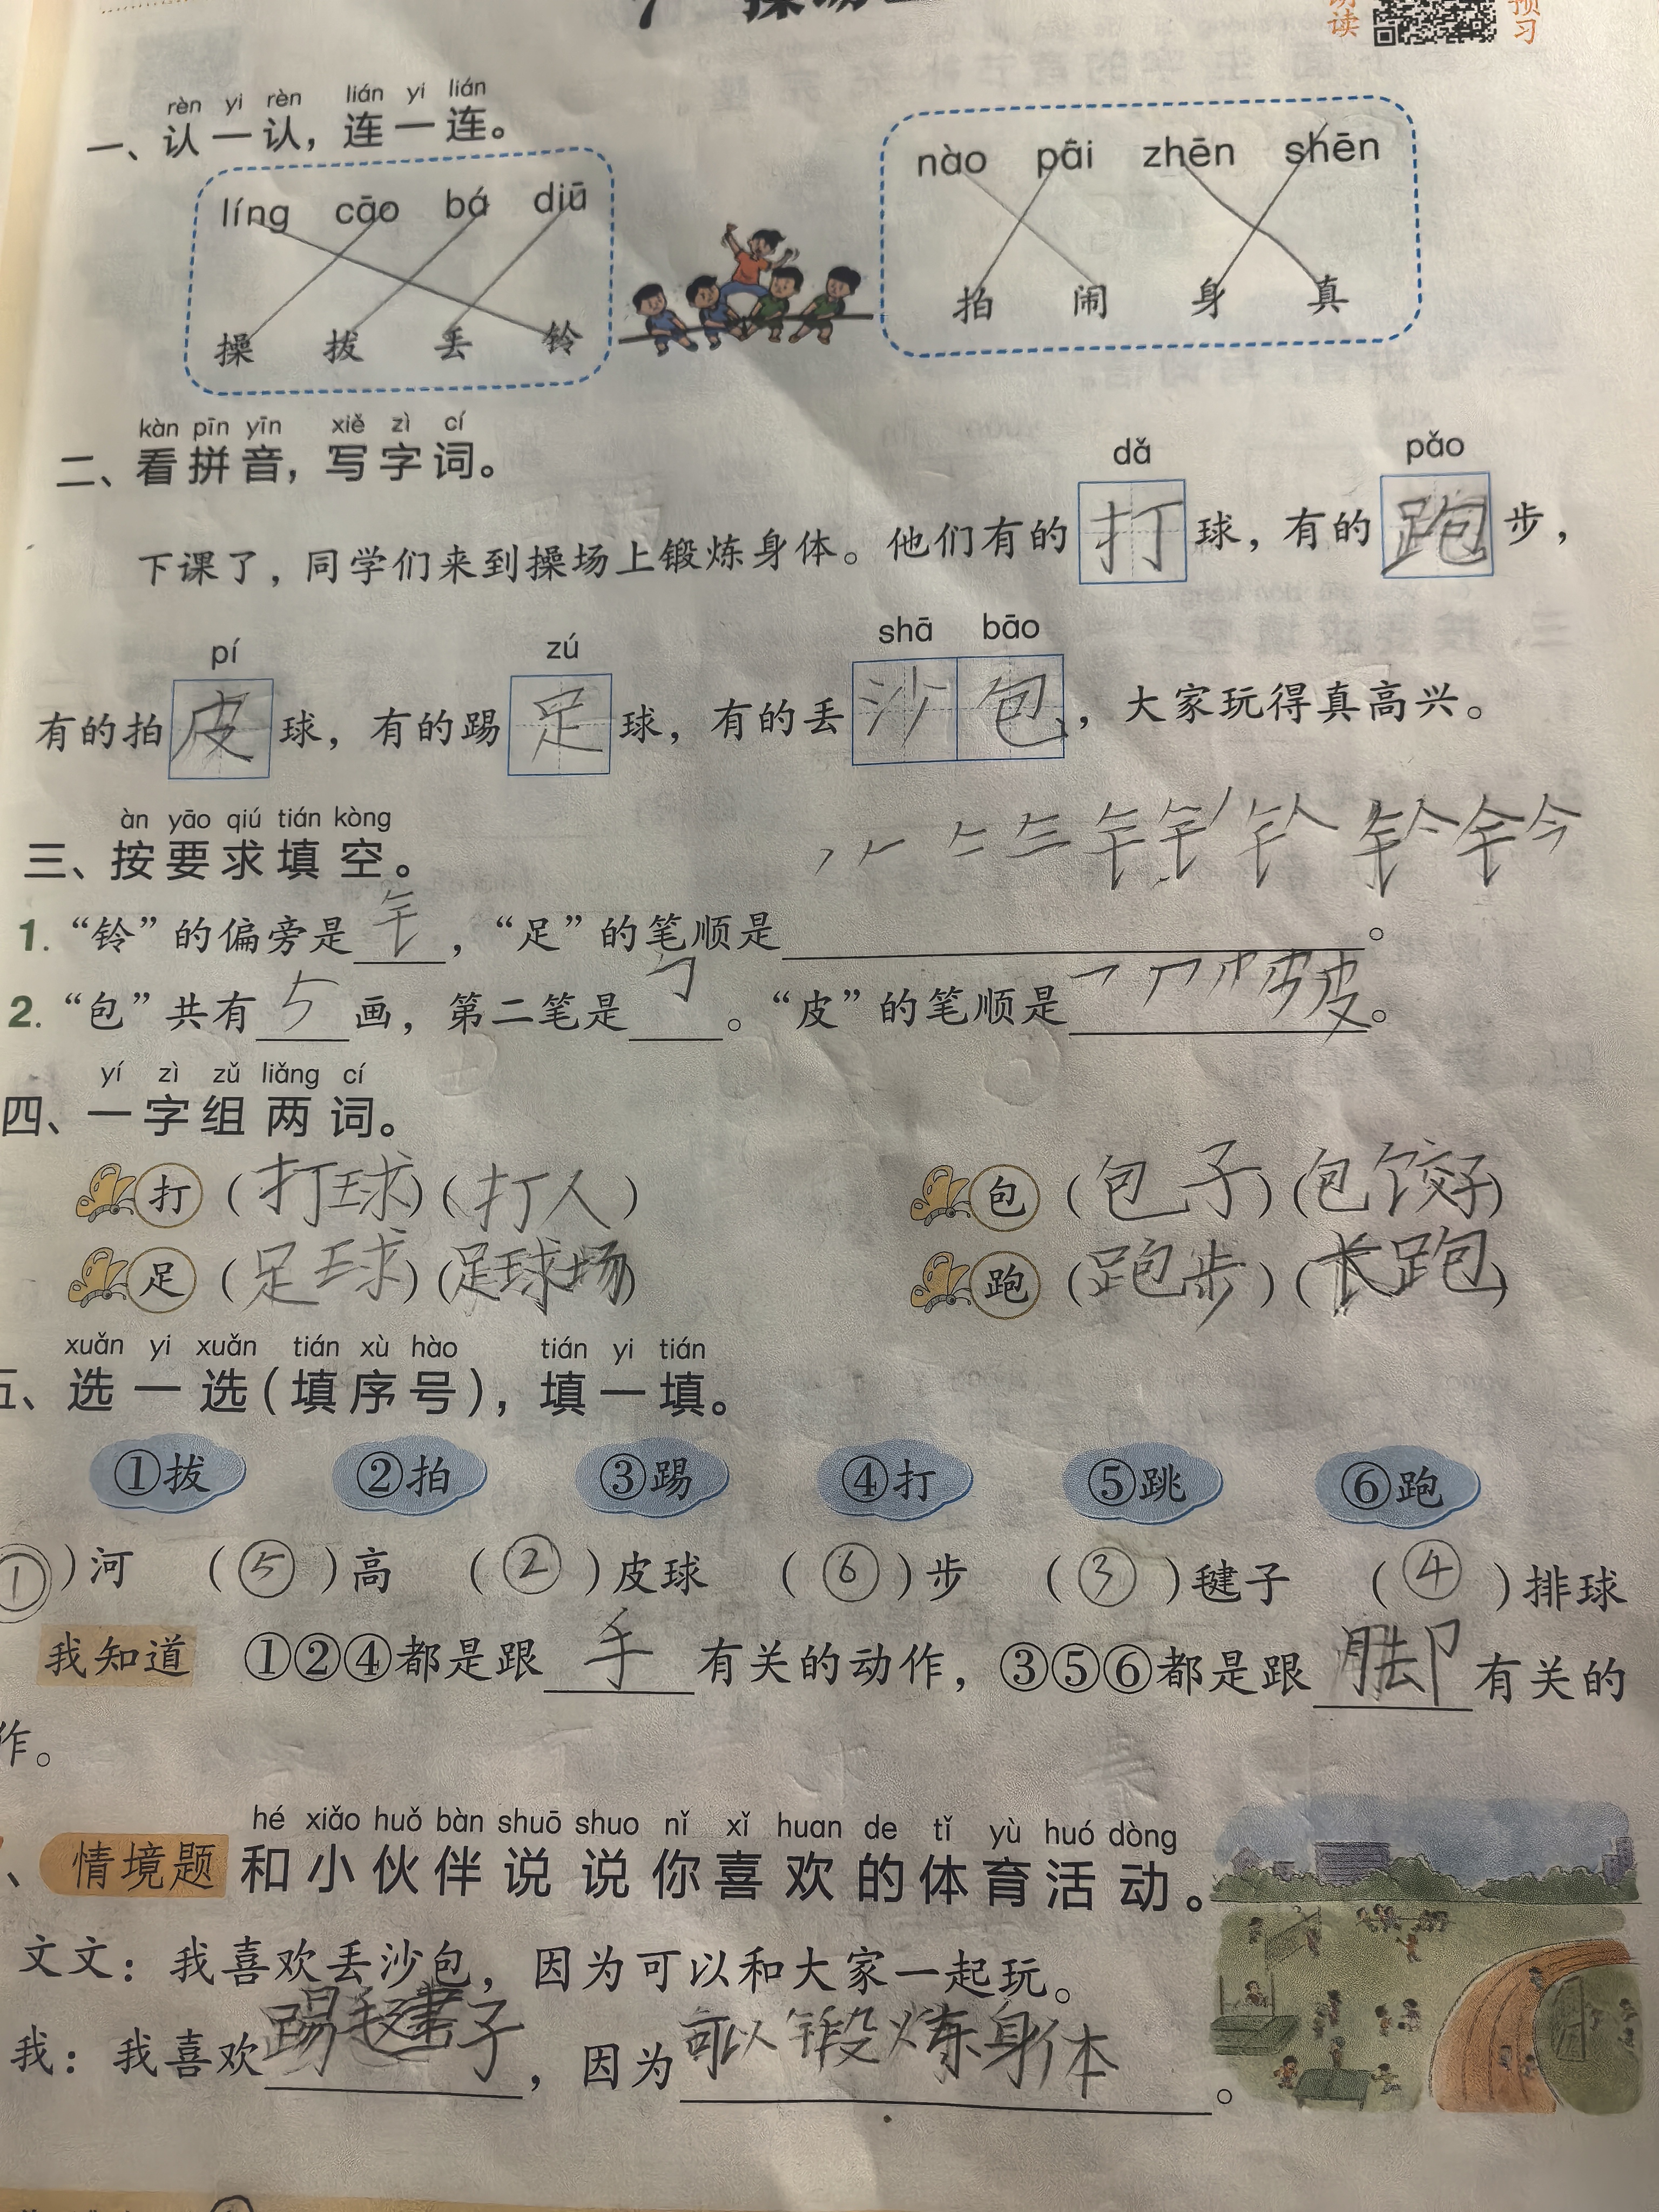 朗读 预习
rèn yi rèn lián yi lián
一、认一认，连一连。
líng cāo bá diū
操 拔 丢 铃
nào pāi zhēn shēn
拍 闹 身 真
kàn pīn yīn xiě zì cí
二、看拼音，写字词。
dǎ pǎo
下课了，同学们来到操场上锻炼身体。他们有的打球，有的跑步，
pí zú shā bāo
有的拍皮球，有的踢足球，有的丢沙包，大家玩得真高兴。
àn yāo qiú tián kòng
三、按要求填空。
1. “铃”的偏旁是钅，“足”的笔顺是 。
2. “包”共有5画，第二笔是𠃌。“皮”的笔顺是 皮。
yí zì zǔ liǎng cí
四、一字组两词。
打（打球）（打人） 包（包子）（包饺子）
足（足球）（足球场） 跑（跑步）（长跑）
xuǎn yi xuǎn tián xù hào tián yi tián
五、选一选（填序号），填一填。
①拔 ②拍 ③踢 ④打 ⑤跳 ⑥跑
①）河 （⑤）高 （②）皮球 （⑥）步 （③）毽子 （④）排球
我知道 ①②④都是跟手有关的动作，③⑤⑥都是跟脚有关的
作。
hé xiǎo huǒ bàn shuō shuo nǐ xǐ huan de tǐ yù huó dòng
、情境题 和小伙伴说说你喜欢的体育活动。
文文：我喜欢丢沙包，因为可以和大家一起玩。
我：我喜欢踢毽子，因为可以锻炼身体。